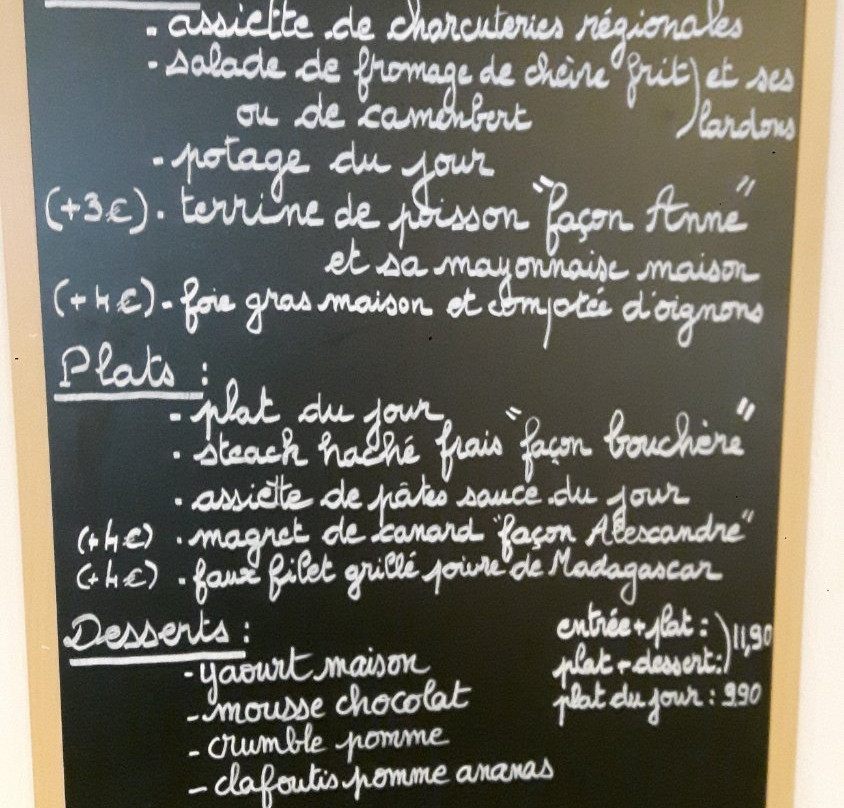 - assiette de charcuteries régionales
- salade de fromage de chèvre frit) et ses
ou de camembert ) lardons
- potage du jour
(+3€) - terrine de poisson "façon Anne"
et sa mayonnaise maison
(+4€) - foie gras maison et compotée d'oignons
Plats :
- plat du jour
- steack haché frais "façon bouchère"
- assiette de pâtes sauce du jour
(+4€) - magret de canard "façon Alexandre"
(+4€) - faux filet grillé poivre de Madagascar
Desserts :
- yaourt maison
- mousse chocolat
- crumble pomme
- clafoutis pomme ananas
entrée + plat : ) 11,90
plat + dessert : )
plat du jour : 9,90